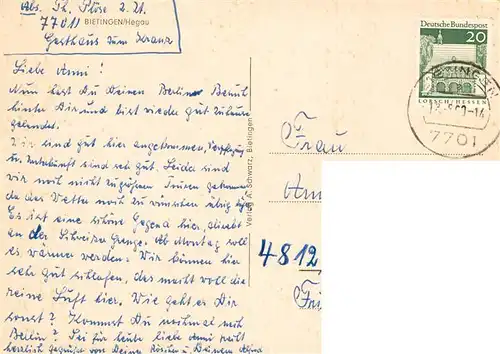 Abs. Th. Plöse z. Zt.
77011
BIETINGEN/Hegau
Gasthaus zum Kranz
Liebe Anni!
Nun hast Du Deinen Berliner Besuch
hinter Dir und bist wieder gut zuhause
gelandet.
Wir sind gut hier angekommen, Verpflegg
u. Unterkunft sind sehr gut. Leider sind
wir noch nicht zu größern Touren gekommen
da das Wetter noch zu wünschen übrig
Es ist eine schöne Gegend hier, direkt
an der Schweizer Grenze. Ab Montag soll
es wärmer werden. Wir können hier
sehr gut schlafen, das macht wohl die
reine Luft hier. Wie geht es Dir
sonst? Kommst Du nochmal nach
Berlin? Sei für heute liebe Anni recht
herzlich gegrüßt von Deiner und Deinem
Verlag A. Schwarz, Bietingen
Deutsche Bundespost
20
LORSCH/HESSEN
7701
Frau
Ann
4812
Fri